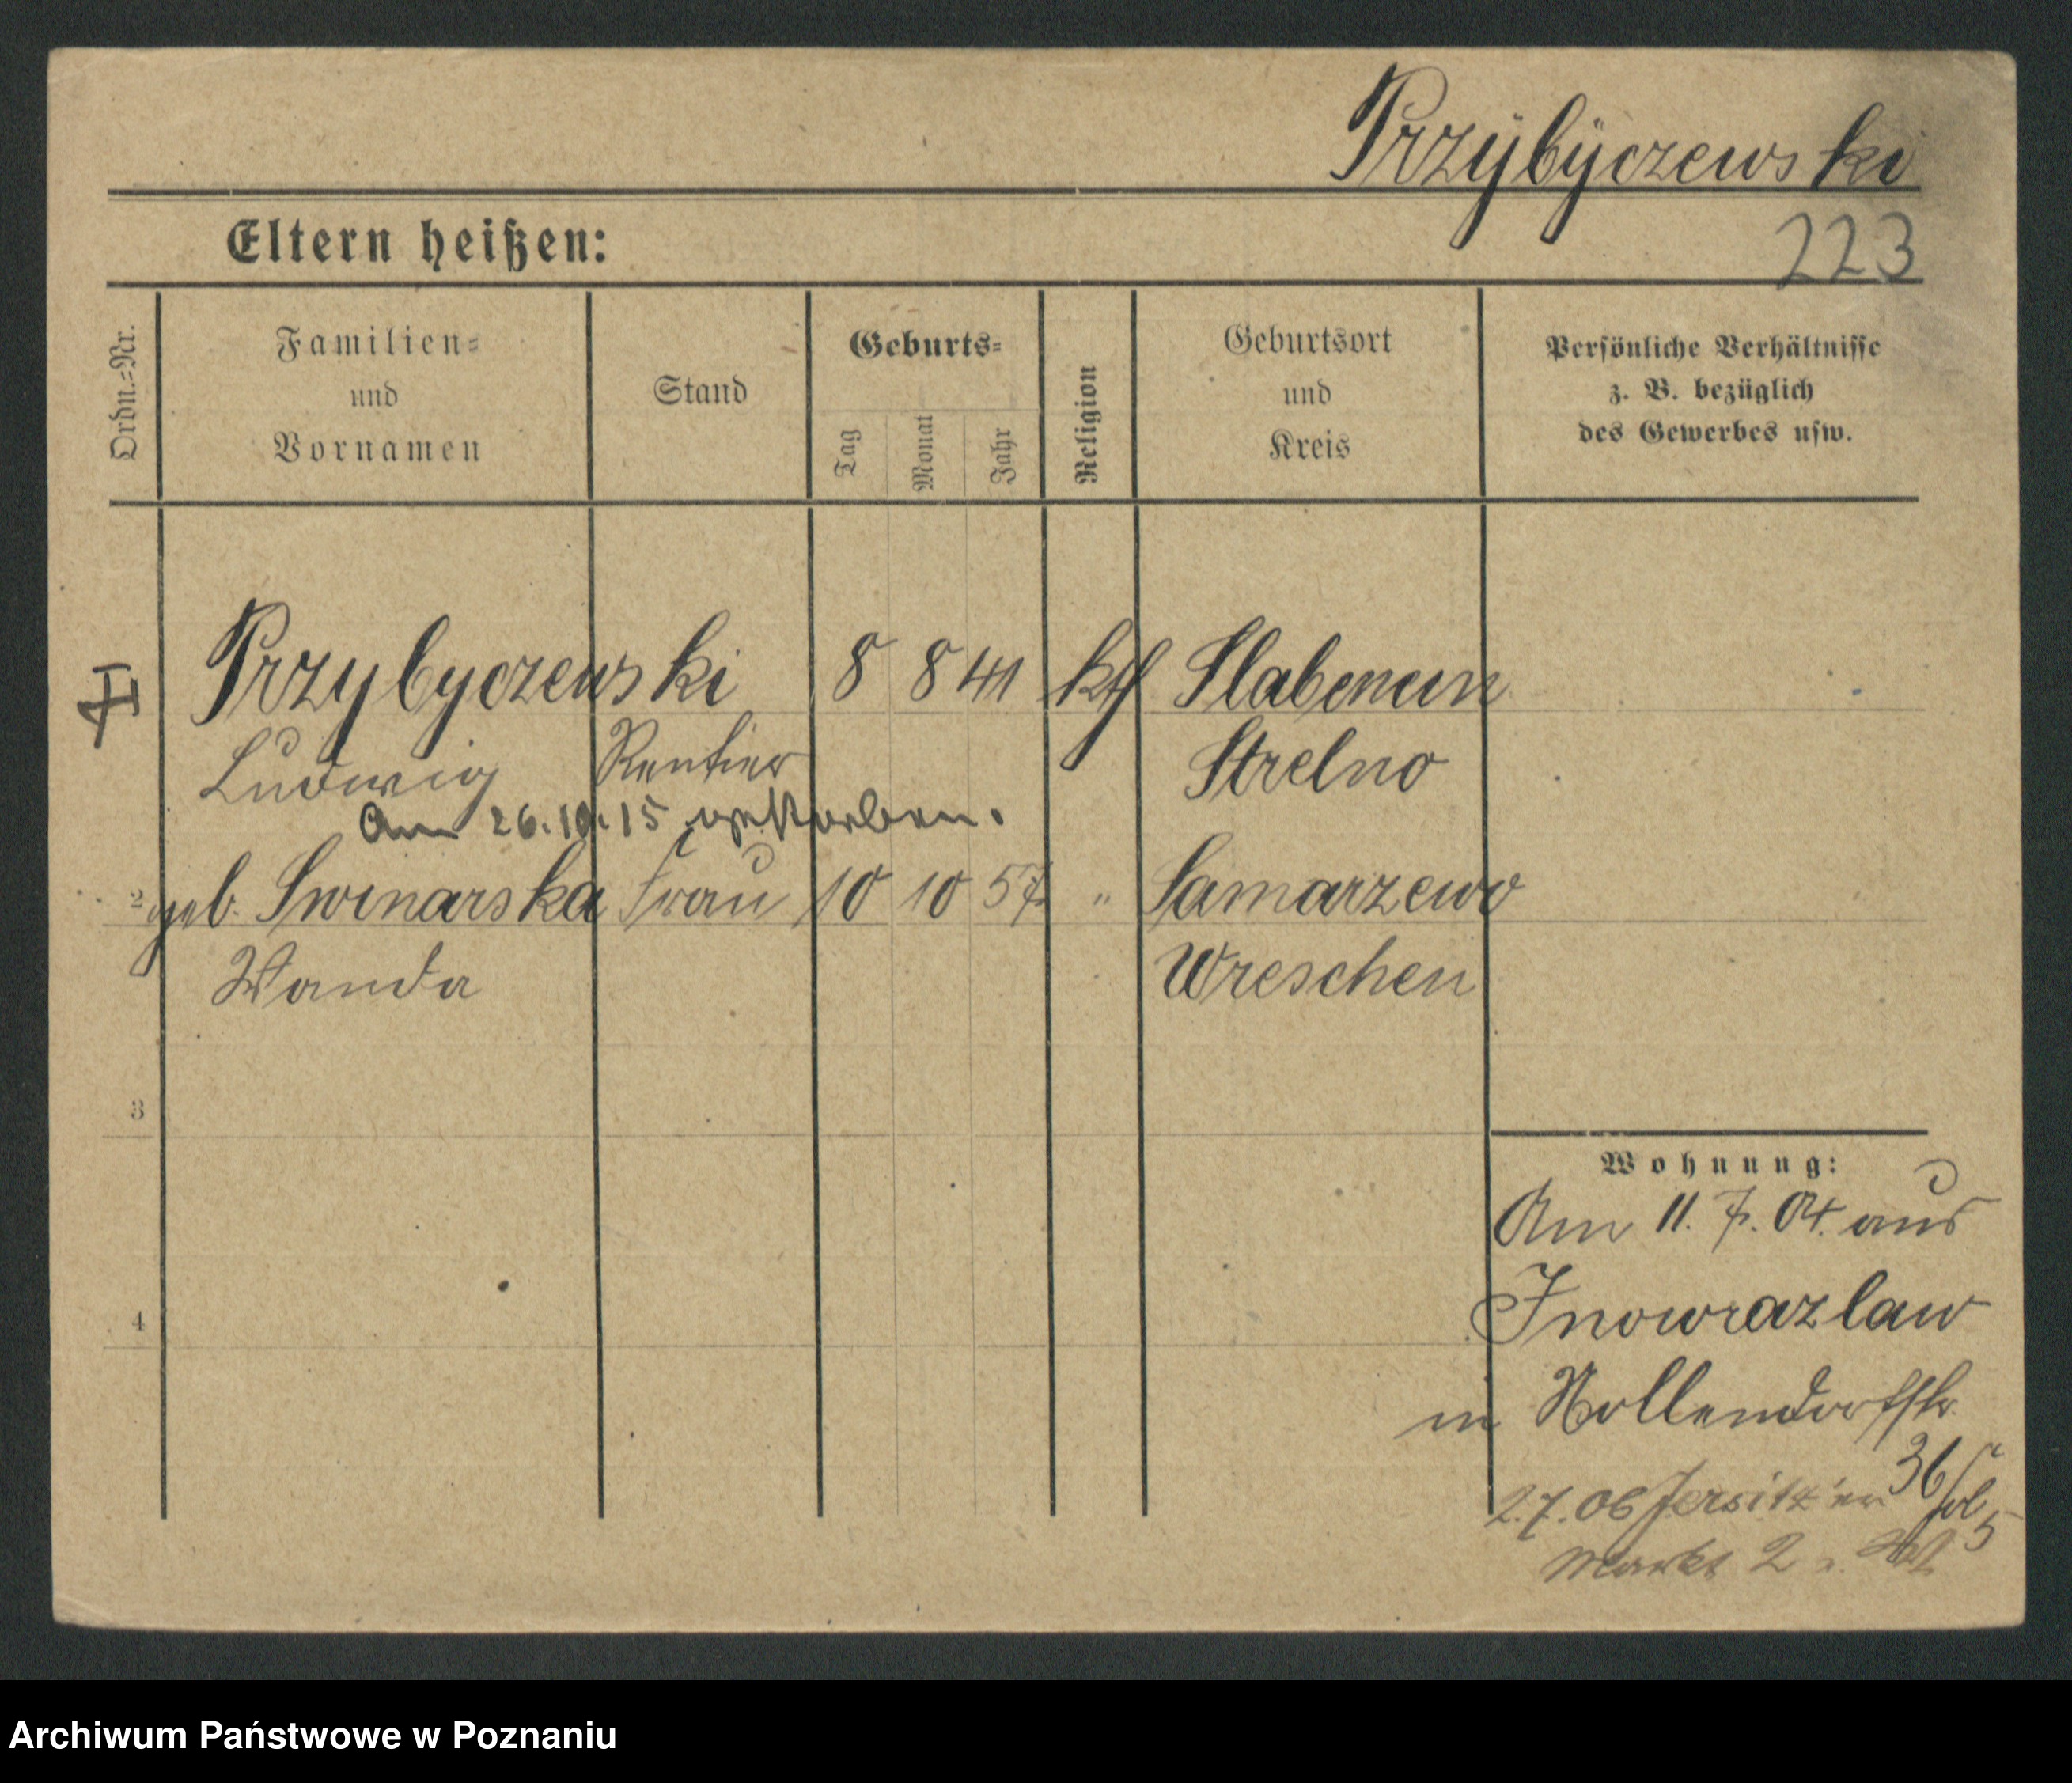 Przybyczewski
Eltern heißen:
223
Ordn.=Nr.
Familien=
und
Vornamen
Stand
Geburts=
Tag
Monat
Jahr
Religion
Geburtsort
und
Kreis
Persönliche Verhältnisse
z. B. bezüglich
des Gewerbes usw.
Przybyczewski 8 8 41 kth
Ludwig Rentier Strelno
Am 26.10.15 gestorben.
2 geb. Swinarska Frau 10 10 57 " Samarzewo
Wanda Wreschen
3
Wohnung:
Am 11. 7. 04. aus
4 Inowrazlaw
in Nollendorfstr.
36
2.7.06 Jersitz'er
Markt 2
Archiwum Państwowe w Poznaniu